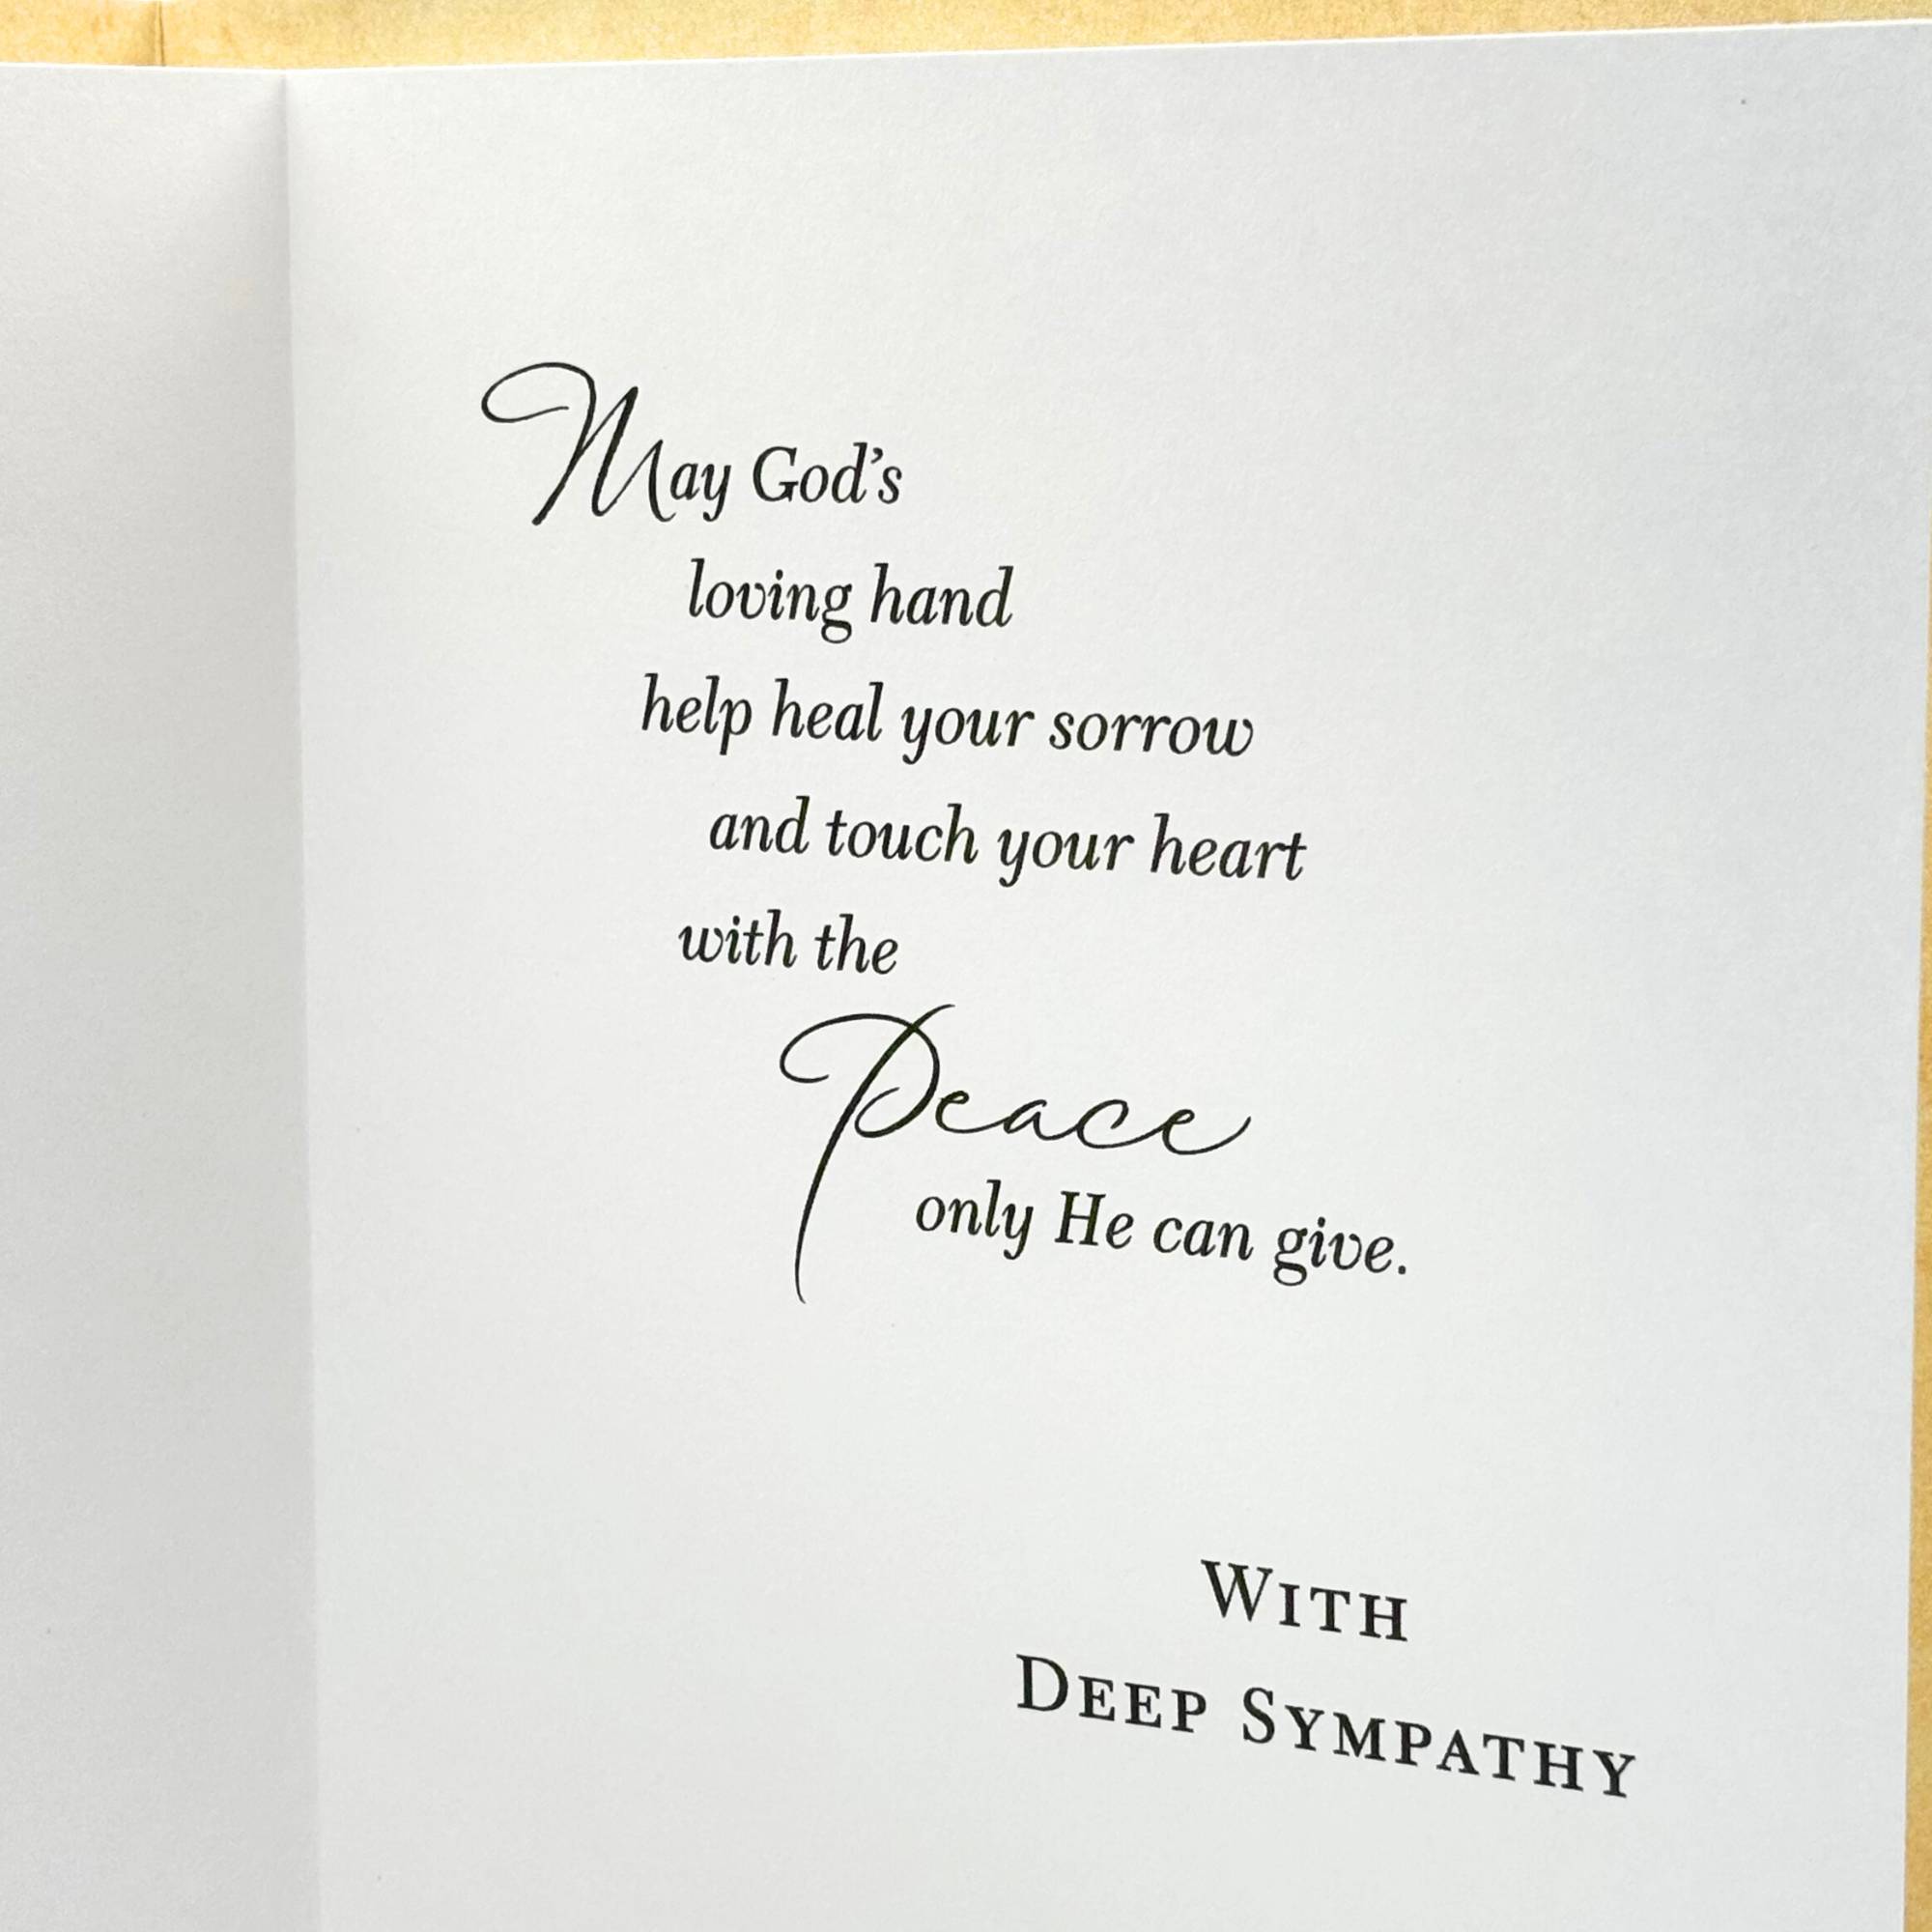 May God’s
loving hand
help heal your sorrow
and touch your heart
with the
Peace
only He can give.
WITH
DEEP SYMPATHY